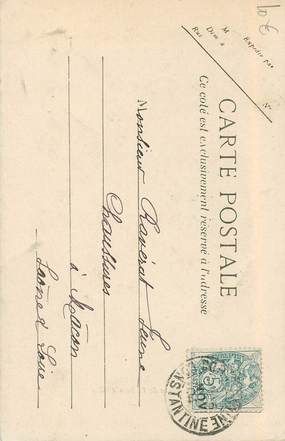 10 €
Expédié par
M
Dim à
Rue
N°
CARTE POSTALE
Ce côté est exclusivement réservé à l'adresse
Monsieur Ravérat Jeune
Chaussures
à Mâcon
Saône & Loire
5
NOV
CONSTANTINE